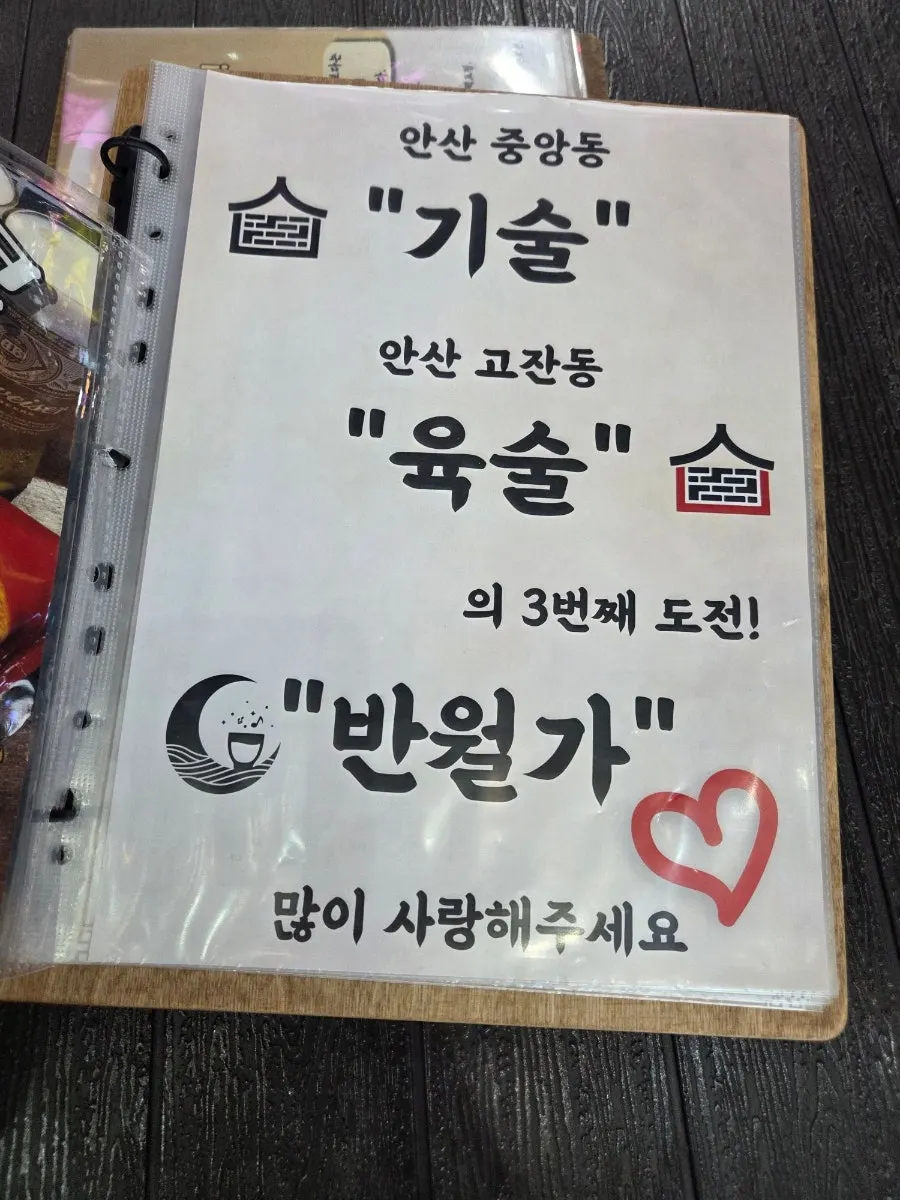 안산 중앙동
"기술"
안산 고잔동
"육술"
의 3번째 도전!
"반월가"
많이 사랑해주세요